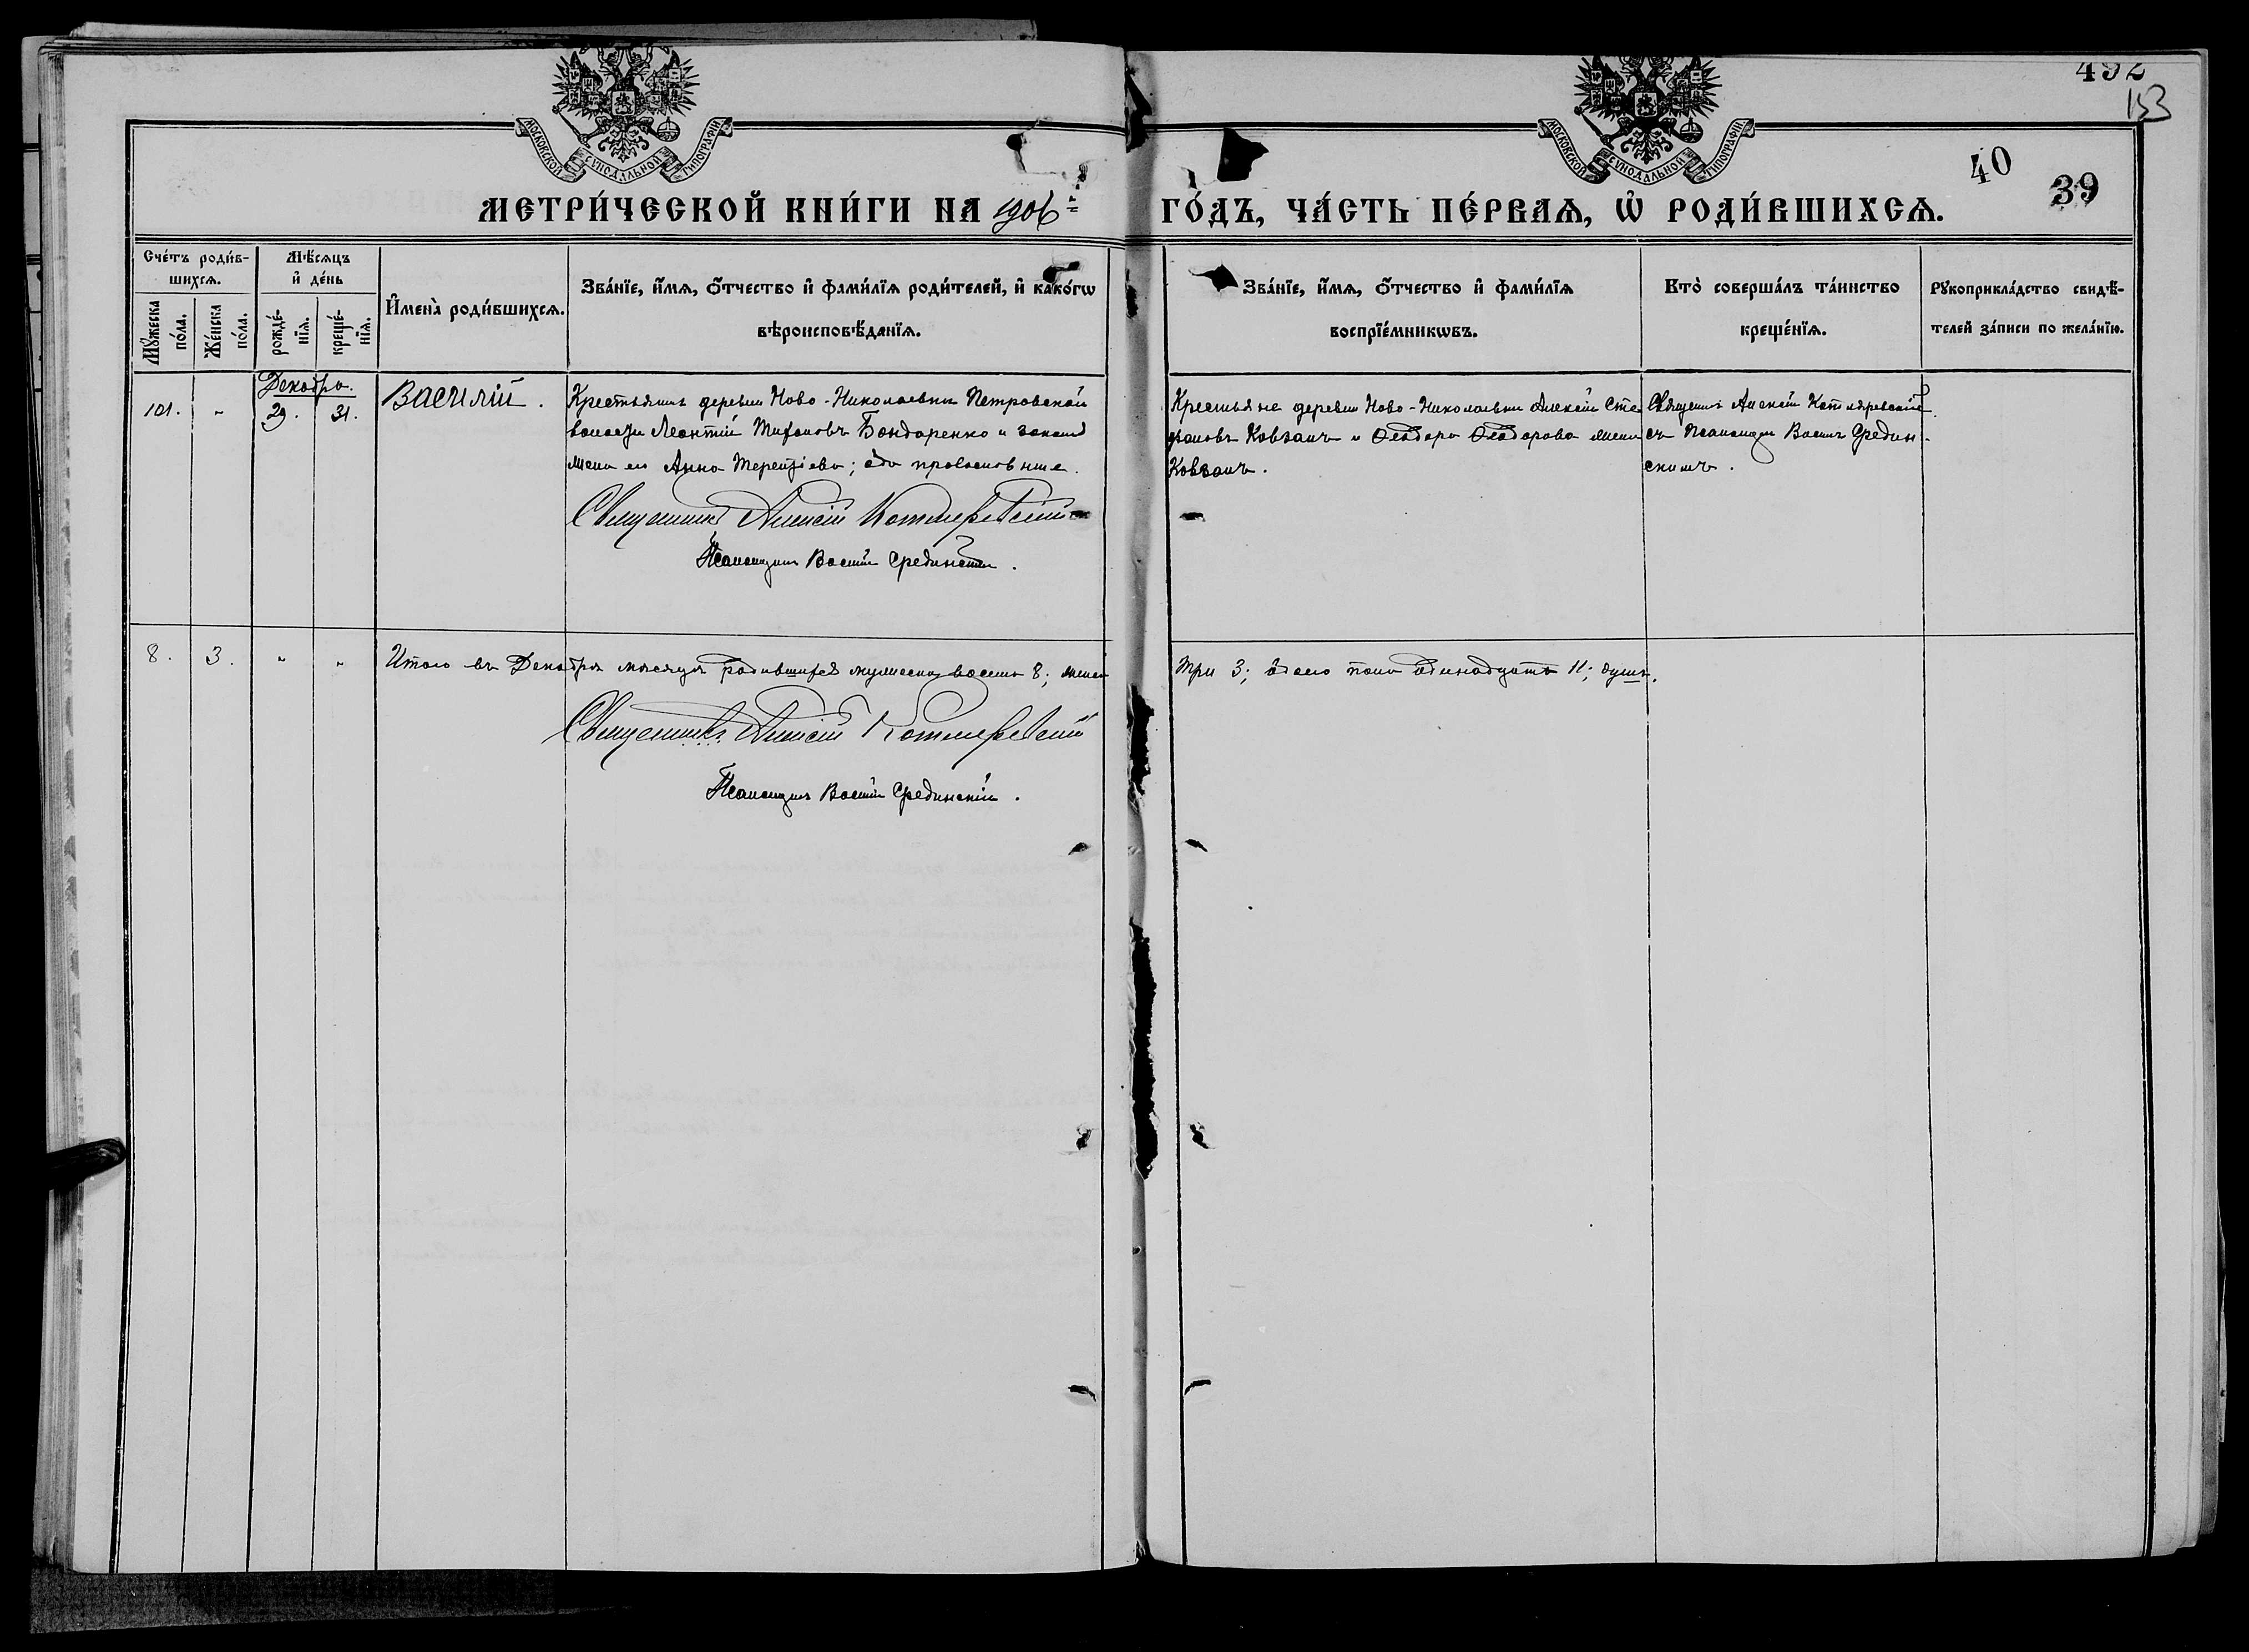 492
153
40
39
МОСКОВСКОЙ СУНОДАЛЬНОЙ ТИПОГРАФІИ.
МОСКОВСКОЙ СУНОДАЛЬНОЙ ТИПОГРАФІИ.
МЕТРИ́ЧЕСКОЙ КНИ́ГИ НА 1906 й ГО́ДЪ, ЧА́СТЬ ПЕ́РВАѦ, Ѡ҆ РОДИ́ВШИХСѦ.
Сче́тъ роди́в-
шихсѧ.
Мꙋ́жеска
по́ла.
Же́нска
по́ла.
Мѣ́сѧцъ
и҆ де́нь
рожде́-
нїѧ.
креще́-
нїѧ.
И҆мена̀ роди́вшихсѧ.
Зва́нїе, и҆́мѧ, ѻ҆́тчество и҆ фами́лїѧ роди́телей, и҆ како́гѡ
вѣроисповѣ́данїѧ.
Зва́нїе, и҆́мѧ, ѻ҆́тчество и҆ фами́лїѧ
воспрїе́мникѡвъ.
Кто̀ соверша́лъ та́инство
креще́нїѧ.
Рꙋкоприкла́дство свидѣ́-
телей за́писи по жела́нїю.
Декабрь.
101. " 29. 31. Василій.
Крестьянинъ деревни Ново-Николаевки Петровской
волости Леонтій Тихоновъ Бондаренко и законная
жена его Анна Терентіева; оба православные.
Священникъ Алексій Котляревскій
Псаломщикъ Василій Срединскій.
Крестьяне деревни Ново-Николаевки Алексій Сте
фановъ Ковзанъ и Ѳеодора Ѳеодорова жена
Ковзанъ.
Священ. Алексій Котляревскій
съ псаломщ. Васил. Средин-
скимъ.
8. 3. " " Итого въ Декабрѣ мѣсяцѣ родившихся мужеска восемь 8; женска
три 3; обоего пола одинадцать 11; душъ.
Священникъ Алексій Котляревскій
Псаломщикъ Василій Срединскій.